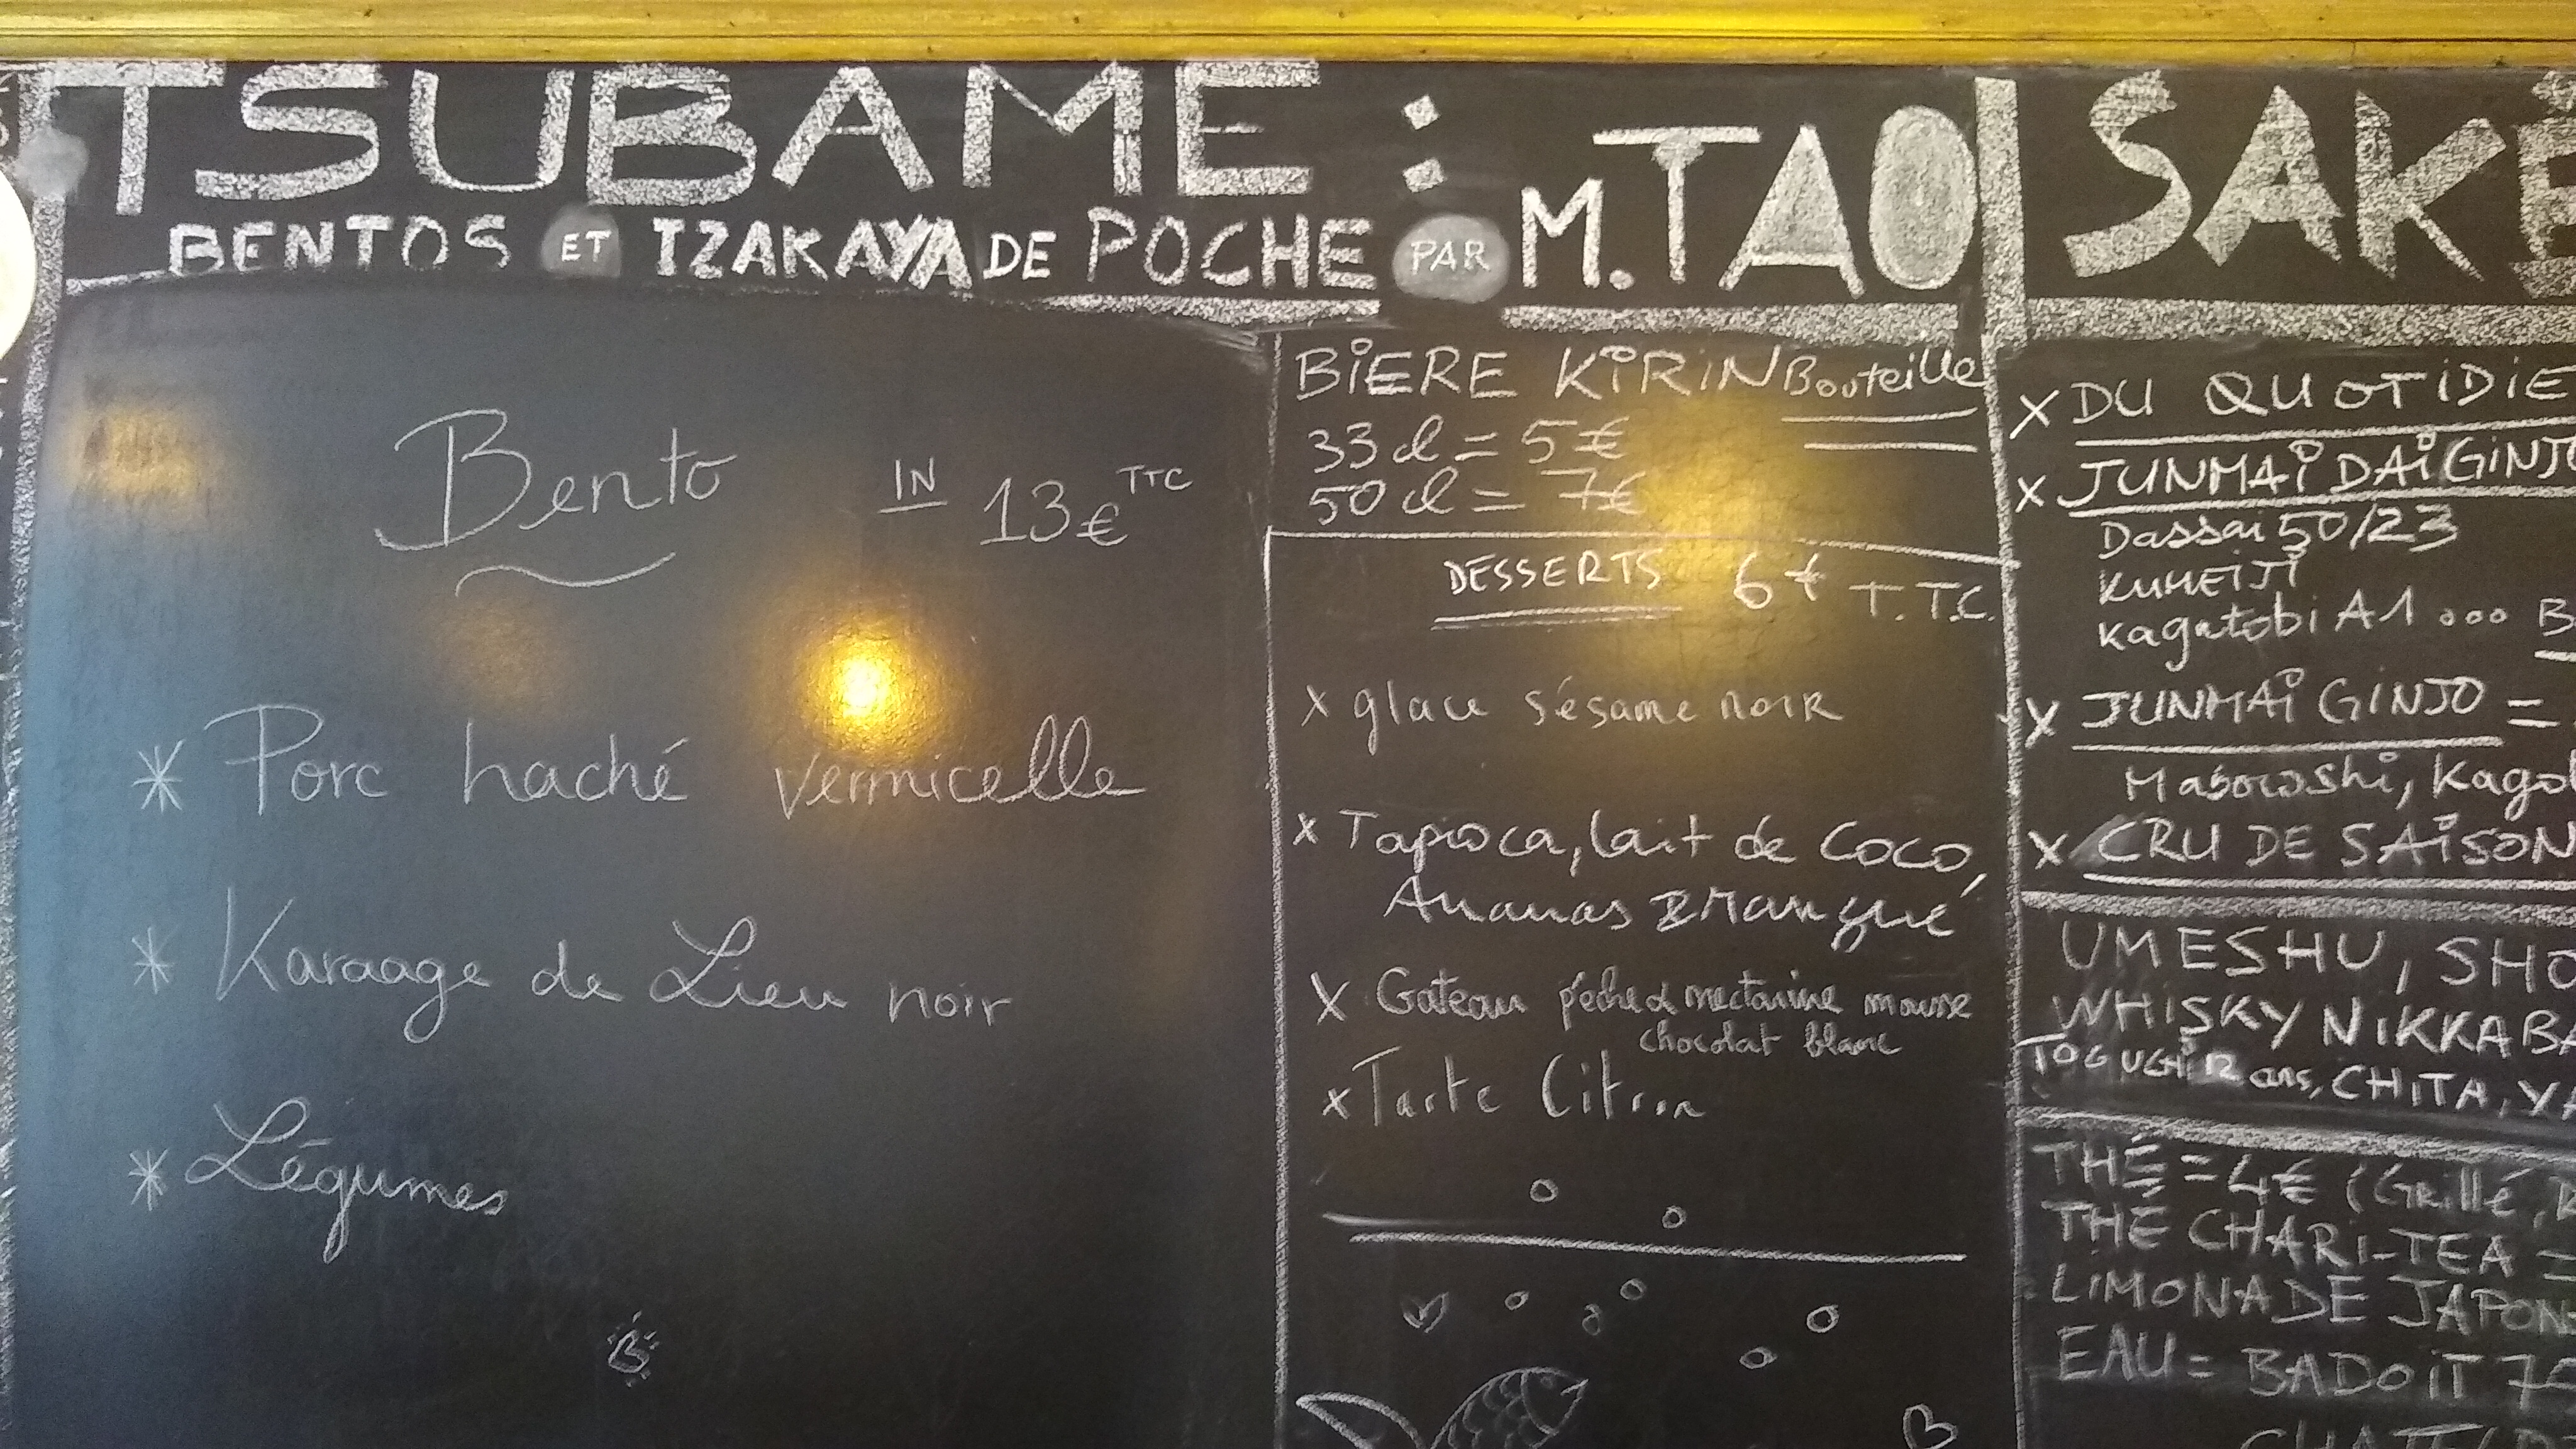 TSUBAME :
BENTOS ET IZAKAYA DE POCHE PAR M. TAO
Bento IN 13€ TTC
* Porc haché vermicelle
* Karaage de Lieu noir
* Légumes
BIERE KIRIN Bouteille
33 cl = 5€
50 cl = 7€
DESSERTS 6€ T.T.C.
x glace sésame noir
x Tapioca, lait de coco,
Ananas & Mangue
x Gateau pêche & nectarine mousse
chocolat blanc
x Tarte Citron
SAKÉ
x DU QUOTIDIE
x JUNMAI DAI GINJO
Dassai 50/23
KUHEIJI
Kagatobi A1 ... B
x JUNMAI GINJO =
Maboroshi, Kago
x CRU DE SAISON
UMESHU, SHO
WHISKY NIKKA BA
TOGUCHI 12 ans, CHITA, YA
THÉ = 4€ (Grillé,
THÉ CHARI-TEA =
LIMONADE JAPON
EAU = BADOIT 7